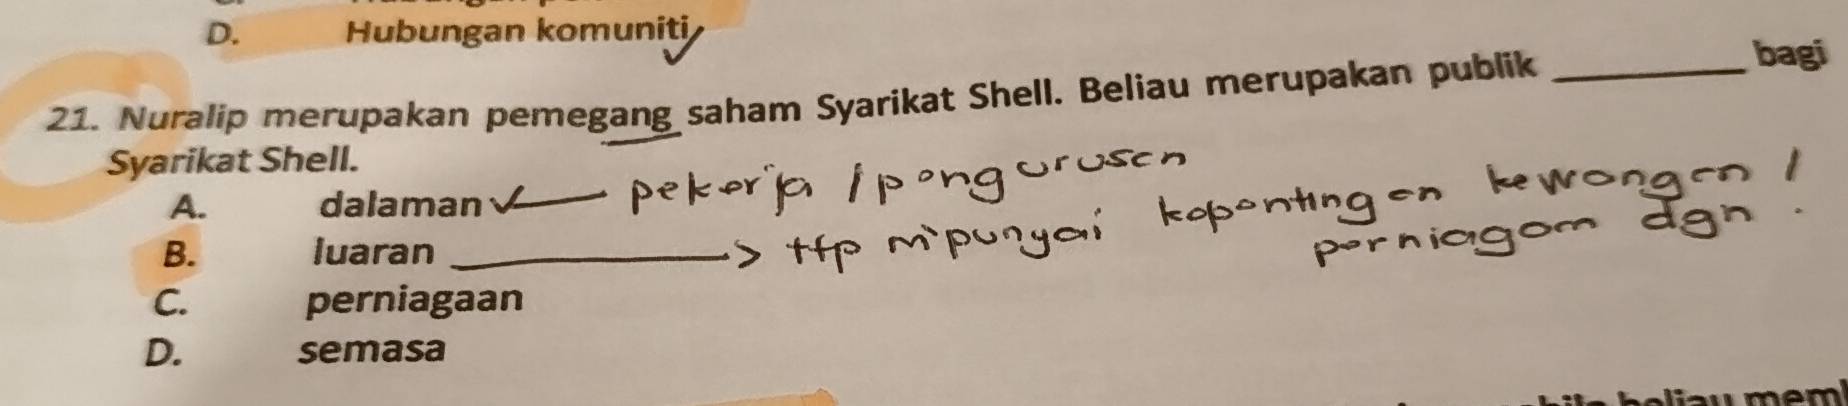 D. Hubungan komuniti
21. Nuralip merupakan pemegang saham Syarikat Shell. Beliau merupakan publik ________ bagi
Syarikat Shell.
A. dalaman pekerja / pengurusan
B. luaran ttp mipunyai kepentingan kewangan /
perniagaan dgn.
C. perniagaan
D. semasa
beliau